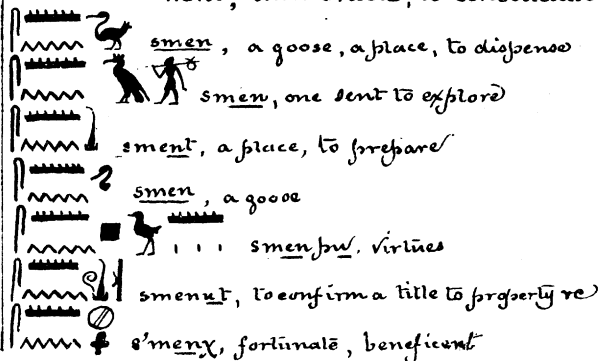 smen, a goose, a place, to dispense
smen, one sent to explore
sment, a place, to prepare
smen, a goose
smenpu, virtues
smenut, to confirm a title to property re
s'menχ, fortunate, beneficent